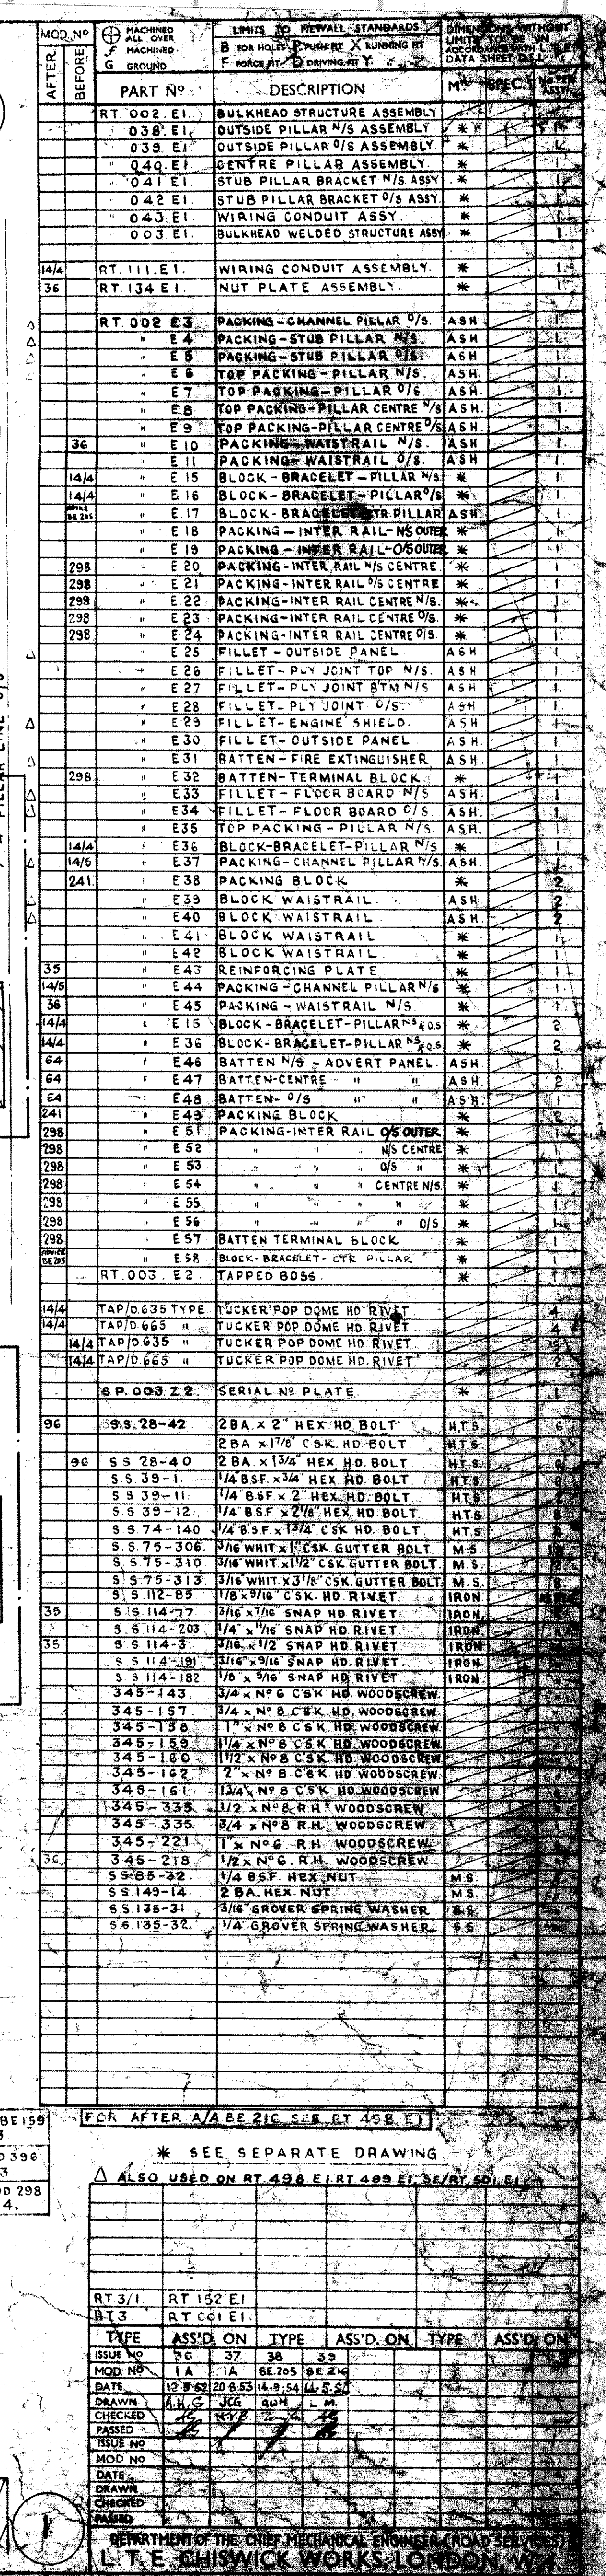 MOD. Nº
AFTER.
BEFORE
MACHINED ALL OVER
f MACHINED
G GROUND
LIMITS TO NEWALL STANDARDS
B FOR HOLES P PUSH FIT X RUNNING FIT
F FORCE FIT D DRIVING FIT Y
DIMENSIONS WITHOUT
LIMITS TO BE IN
ACCORDANCE WITH
DATA SHEET D.S.I.
PART Nº DESCRIPTION SPEC.
RT. 002. E1. BULKHEAD STRUCTURE ASSEMBLY
" 038. E1. OUTSIDE PILLAR N/S ASSEMBLY * 1
" 039. E1. OUTSIDE PILLAR O/S ASSEMBLY * 1
" 040. E1. CENTRE PILLAR ASSEMBLY. * 1
" 041 E1. STUB PILLAR BRACKET N/S. ASSY. * 1
" 042 E1. STUB PILLAR BRACKET O/S ASSY. * 1
" 043. E1. WIRING CONDUIT ASSY. * 1
003 E1. BULKHEAD WELDED STRUCTURE ASSY * 1
14/4 RT. 111. E1. WIRING CONDUIT ASSEMBLY. * 1
36 RT. 134 E1. NUT PLATE ASSEMBLY. * 1
RT. 002 E3 PACKING-CHANNEL PILLAR O/S. ASH 1
" E4 PACKING-STUB PILLAR N/S. ASH 1
" E5 PACKING-STUB PILLAR O/S. ASH 1
" E6 TOP PACKING-PILLAR N/S. ASH. 1
" E7 TOP PACKING-PILLAR O/S. ASH. 1
" E8 TOP PACKING-PILLAR CENTRE N/S ASH. 1
" E9 TOP PACKING-PILLAR CENTRE O/S ASH. 1
36 " E10 PACKING-WAISTRAIL N/S. ASH 1
" E11 PACKING-WAISTRAIL O/S. ASH 1
14/4 " E15 BLOCK-BRACELET-PILLAR N/S * 1
14/4 " E16 BLOCK-BRACELET-PILLAR O/S * 1
BE 205 " E17 BLOCK-BRACELET-CTR. PILLAR ASH 1
" E18 PACKING-INTER RAIL-N/S OUTER * 1
" E19 PACKING-INTER RAIL-O/S OUTER * 1
298 " E20 PACKING-INTER RAIL N/S CENTRE. * 1
298 " E21 PACKING-INTER RAIL O/S CENTRE * 1
298 " E22 PACKING-INTER RAIL CENTRE N/S. * 1
298 " E23 PACKING-INTER RAIL CENTRE O/S. * 1
298 " E24 PACKING-INTER RAIL CENTRE O/S. * 1
" E25 FILLET-OUTSIDE PANEL ASH 1
" E26 FILLET-PLY JOINT TOP N/S. ASH 1
" E27 FILLET-PLY JOINT BTM N/S ASH 1
" E28 FILLET-PLY JOINT O/S. ASH 1
" E29 FILLET-ENGINE SHIELD. ASH 1
" E30 FILLET-OUTSIDE PANEL ASH. 1
" E31 BATTEN-FIRE EXTINGUISHER ASH. 1
298 " E32 BATTEN-TERMINAL BLOCK * 1
" E33 FILLET-FLOOR BOARD N/S ASH. 1
" E34 FILLET-FLOOR BOARD O/S. ASH. 1
" E35 TOP PACKING-PILLAR N/S. ASH. 1
14/4 " E36 BLOCK-BRACELET-PILLAR N/S. * 1
14/5 " E37 PACKING-CHANNEL PILLAR N/S. ASH. 1
241. " E38 PACKING BLOCK * 2
" E39 BLOCK WAISTRAIL. ASH. 2
" E40 BLOCK WAISTRAIL. ASH. 2
" E41 BLOCK WAISTRAIL * 1
" E42 BLOCK WAISTRAIL * 1
35 " E43 REINFORCING PLATE * 1
14/5 " E44 PACKING-CHANNEL PILLAR N/S * 1
36 " E45 PACKING-WAISTRAIL N/S. * 1
14/4 " E15 BLOCK-BRACELET-PILLAR N/S & O.S * 2
14/4 " E36 BLOCK-BRACELET-PILLAR N/S & O.S. * 2
64 " E46 BATTEN N/S.-ADVERT PANEL. ASH. 1
64 " E47 BATTEN-CENTRE " " ASH. 2
64 " E48 BATTEN-O/S " " ASH. 1
241 " E49 PACKING BLOCK * 2
298 " E51 PACKING-INTER RAIL O/S OUTER * 1
298 " E52 " " " N/S CENTRE * 1
298 " E53 " " " O/S " * 1
298 " E54 " " " CENTRE N/S. * 1
298 " E55 " " " " " * 1
298 " E56 " " " " O/S * 1
298 " E57 BATTEN TERMINAL BLOCK * 1
ADVICE BE205 " E58 BLOCK-BRACELET-CTR PILLAR * 1
RT. 003. E2. TAPPED BOSS. * 1
14/4 TAP/D.635 TYPE TUCKER POP DOME HD RIVET 4
14/4 TAP/D.665 " TUCKER POP DOME HD. RIVET 4
14/4 TAP/D.635 " TUCKER POP DOME HD RIVET
14/4 TAP/D.665 " TUCKER POP DOME HD. RIVET 2
SP. 003. Z2. SERIAL Nº PLATE * 1
96 S.S. 28-42 2 BA. x 2" HEX. HD. BOLT H.T.S. 6
2 BA x 1 7/8" CSK. HD. BOLT H.T.S.
96 SS 28-40 2 BA. x 1 3/4" HEX HD. BOLT H.T.S.
S.S. 39-1. 1/4" BSF. x 3/4" HEX. HD. BOLT. H.T.S.
S.S 39-11. 1/4" B.S.F x 2" HEX. HD. BOLT. H.T.S.
S.S 39-12. 1/4" B.S.F. x 2 1/8" HEX. HD. BOLT. H.T.S.
S.S. 74-140 1/4" B.S.F. x 1 3/4" CSK HD. BOLT. H.T.S.
S.S. 75-306. 3/16 WHIT. x 1" CSK GUTTER BOLT. M.S.
S.S. 75-310 3/16" WHIT x 1 1/2" CSK. GUTTER BOLT. M.S.
S.S. 75-313. 3/16 WHIT. x 3 1/8" CSK. GUTTER BOLT M.S.
S.S. 112-85 1/8 x 9/16" CSK. HD. RIVET IRON
35 S.S. 114-77 3/16 x 7/16" SNAP HD. RIVET. IRON.
S.S. 114-203 1/4" x 11/16" SNAP HD. RIVET. IRON.
35 S.S 114-3 3/16 x 1/2 SNAP HD. RIVET. IRON
S.S 114-191 3/16" x 9/16 SNAP HD. RIVET. IRON.
S.S 114-182 1/8" x 5/16" SNAP HD. RIVET IRON.
345-143 3/4 x Nº 6 CSK HD. WOODSCREW.
345-157 3/4 x Nº 8 CSK HD. WOODSCREW.
345-158 1" x Nº 8 CSK HD. WOODSCREW.
345-159 1 1/4 x Nº 8 CSK HD. WOODSCREW.
345-160 1 1/2 x Nº 8 CSK HD WOODSCREW.
345-162 2" x Nº 8 CSK HD WOODSCREW.
345-161 1 3/4 x Nº 8 CSK HD WOODSCREW.
345-333 1/2 x Nº 8 R.H. WOODSCREW.
345-335 3/4 x Nº 8 R.H. WOODSCREW.
345-221 1" x Nº 6. R.H. WOODSCREW
36 345-218 1/2 x Nº 6. R.H. WOODSCREW
SS 85-32 1/4 B.S.F. HEX. NUT M.S.
S.S. 149-14 2 BA. HEX. NUT M.S.
SS. 135-31 3/16" GROVER SPRING WASHER S.S.
SS. 135-32 1/4 GROVER SPRING WASHER S.S.
BE 159
3
D 396
3
OD 298
4.
FOR AFTER A/A BE 216 SEE RT 498. E1
* SEE SEPARATE DRAWING
△ ALSO USED ON RT. 498. E1. RT 499 E1. SE/RT. 501. E1.
RT 3/1 RT. 152 E1
RT3 RT 001 E1.
TYPE ASS'D. ON TYPE ASS'D. ON TYPE ASS'D. ON
ISSUE Nº 36 37 38 39
MOD. Nº 1A 1A BE.205 BE 216
DATE. 12-8-52 20 8.53 14.9.54
DRAWN A.H.G JCG QWH L.M.
CHECKED
PASSED
ISSUE Nº
MOD Nº
DATE
DRAWN
CHECKED
PASSED
1
DEPARTMENT OF THE CHIEF MECHANICAL ENGINEER (ROAD SERVICES)
L.T.E. CHISWICK WORKS, LONDON, W.4.